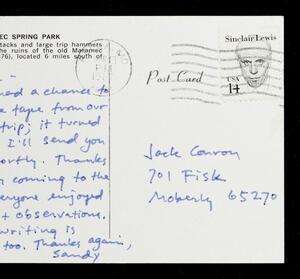 EC SPRING PARK
tacks and large trip hammers
the ruins of the old Maramec
76), located 6 miles south of
had a chance to
e tape from our
trip; it turned
I'll send you
ortly. Thanks
coming to the
eryone enjoyed
+ observations.
writing is
too. Thanks again,
Sandy
Sinclair Lewis
USA
14
Post Card
Jack Conroy
701 Fisk
Moberly 65270